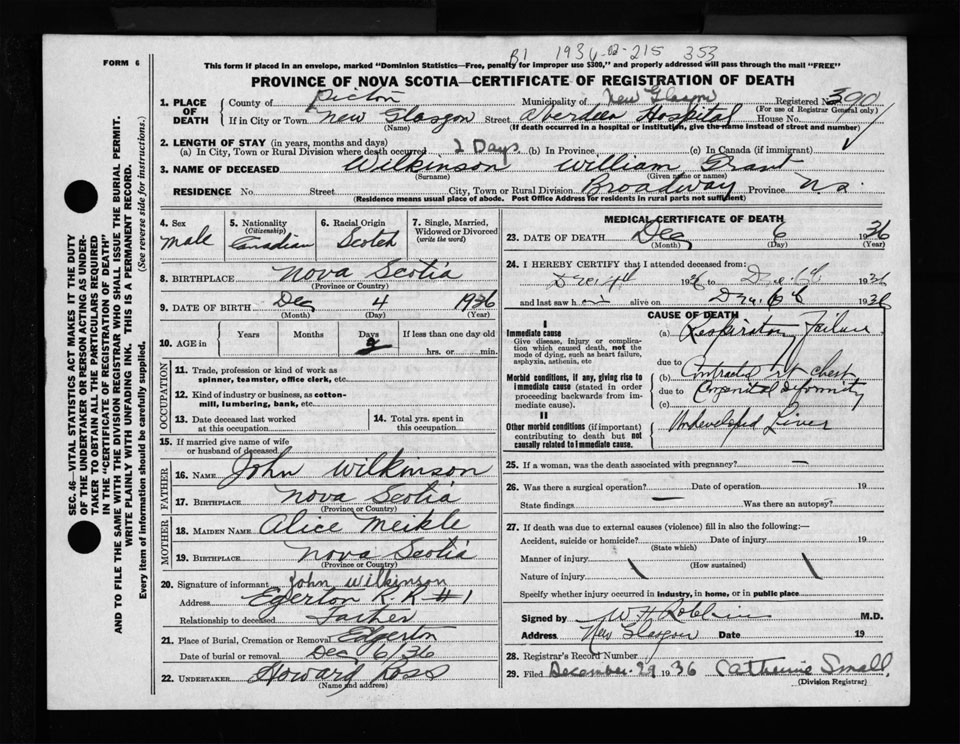 B1 1936-02-215 353
FORM 6
This form if placed in an envelope, marked "Dominion Statistics—Free, penalty for improper use $300," and properly addressed will pass through the mail "FREE"
PROVINCE OF NOVA SCOTIA—CERTIFICATE OF REGISTRATION OF DEATH
1. PLACE OF DEATH County of Pictou Municipality of New Glasgow Registered No. 390
(For use of Registrar General only)
If in City or Town New Glasgow Street Aberdeen Hospital House No.
(Name) (If death occurred in a hospital or institution, give the name instead of street and number)
2. LENGTH OF STAY (in years, months and days)
(a) In City, Town or Rural Division where death occurred 2 Days (b) In Province (c) In Canada (if immigrant)
3. NAME OF DECEASED Wilkinson William Grant
(Surname) (Given name or names)
RESIDENCE No. Street City, Town or Rural Division Broadway Province N.S.
(Residence means usual place of abode. Post Office Address for residents in rural parts not sufficient)
4. Sex male
5. Nationality (Citizenship) Canadian
6. Racial Origin Scotch
7. Single, Married, Widowed or Divorced (write the word)
8. BIRTHPLACE Nova Scotia
(Province or Country)
9. DATE OF BIRTH Dec 4 1936
(Month) (Day) (Year)
10. AGE in Years Months Days 2 If less than one day old
hrs. or min.
OCCUPATION
11. Trade, profession or kind of work as spinner, teamster, office clerk, etc.
12. Kind of industry or business, as cotton-mill, lumbering, bank, etc.
13. Date deceased last worked at this occupation
14. Total yrs. spent in this occupation
15. If married give name of wife or husband of deceased
FATHER
16. NAME John Wilkinson
17. BIRTHPLACE Nova Scotia
(Province or Country)
MOTHER
18. MAIDEN NAME Alice Meikle
19. BIRTHPLACE Nova Scotia
(Province or Country)
20. Signature of informant John Wilkinson
Address Egerton R.R #1
Relationship to deceased Father
21. Place of Burial, Cremation or Removal Egerton
Date of burial or removal Dec 6/36
22. UNDERTAKER Howard Ross
(Name and address)
MEDICAL CERTIFICATE OF DEATH
23. DATE OF DEATH Dec 6 1936
(Month) (Day) (Year)
24. I HEREBY CERTIFY that I attended deceased from:
Dec 4th 1936 to Dec 6th 1936
and last saw h im alive on Dec 6th 1936
CAUSE OF DEATH
I
Immediate cause
Give disease, injury or complication which caused death, not the mode of dying, such as heart failure, asphyxia, asthenia, etc
(a) Respiratory Failure
due to
Morbid conditions, if any, giving rise to immediate cause (stated in order proceeding backwards from immediate cause).
(b) Contracted rt chest
due to Congenital deformity
(c)
II
Other morbid conditions (if important) contributing to death but not causally related to immediate cause.
Undeveloped Liver
25. If a woman, was the death associated with pregnancy? —
26. Was there a surgical operation? — Date of operation 19
State findings — Was there an autopsy?
27. If death was due to external causes (violence) fill in also the following:—
Accident, suicide or homicide? Date of injury 19
(State which)
Manner of injury
(How sustained)
Nature of injury
Specify whether injury occurred in industry, in home, or in public place
Signed by W H Robbins M.D.
Address New Glasgow Date 19
28. Registrar's Record Number
29. Filed December 29 1936 Catherine Small
(Division Registrar)
SEC. 46—VITAL STATISTICS ACT MAKES IT THE DUTY
OF THE UNDERTAKER OR PERSON ACTING AS UNDER-
TAKER TO OBTAIN ALL THE PARTICULARS REQUIRED
IN THE "CERTIFICATE OF REGISTRATION OF DEATH"
AND TO FILE THE SAME WITH THE DIVISION REGISTRAR WHO SHALL ISSUE THE BURIAL PERMIT.
WRITE PLAINLY WITH UNFADING INK. THIS IS A PERMANENT RECORD.
Every item of information should be carefully supplied. (See reverse side for instructions.)